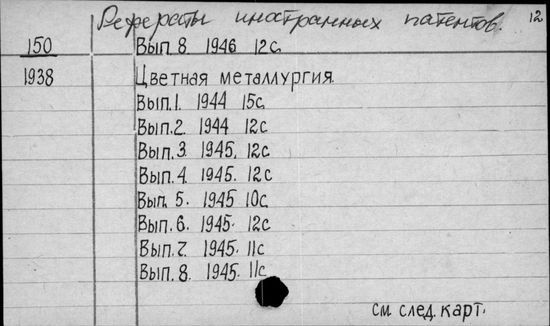 Рефераты иностранных патентов. 12
150 Вып. 8 1946 12с.
1938 Цветная металлургия.
Вып.1. 1944 15с.
Вып.2. 1944 12с
Вып.3. 1945. 12с
Вып.4. 1945. 12с
Вып. 5. 1945 10с.
Вып.6. 1945. 12с
Вып.7. 1945. 11с
Вып.8. 1945. 11с
см. след. карт.